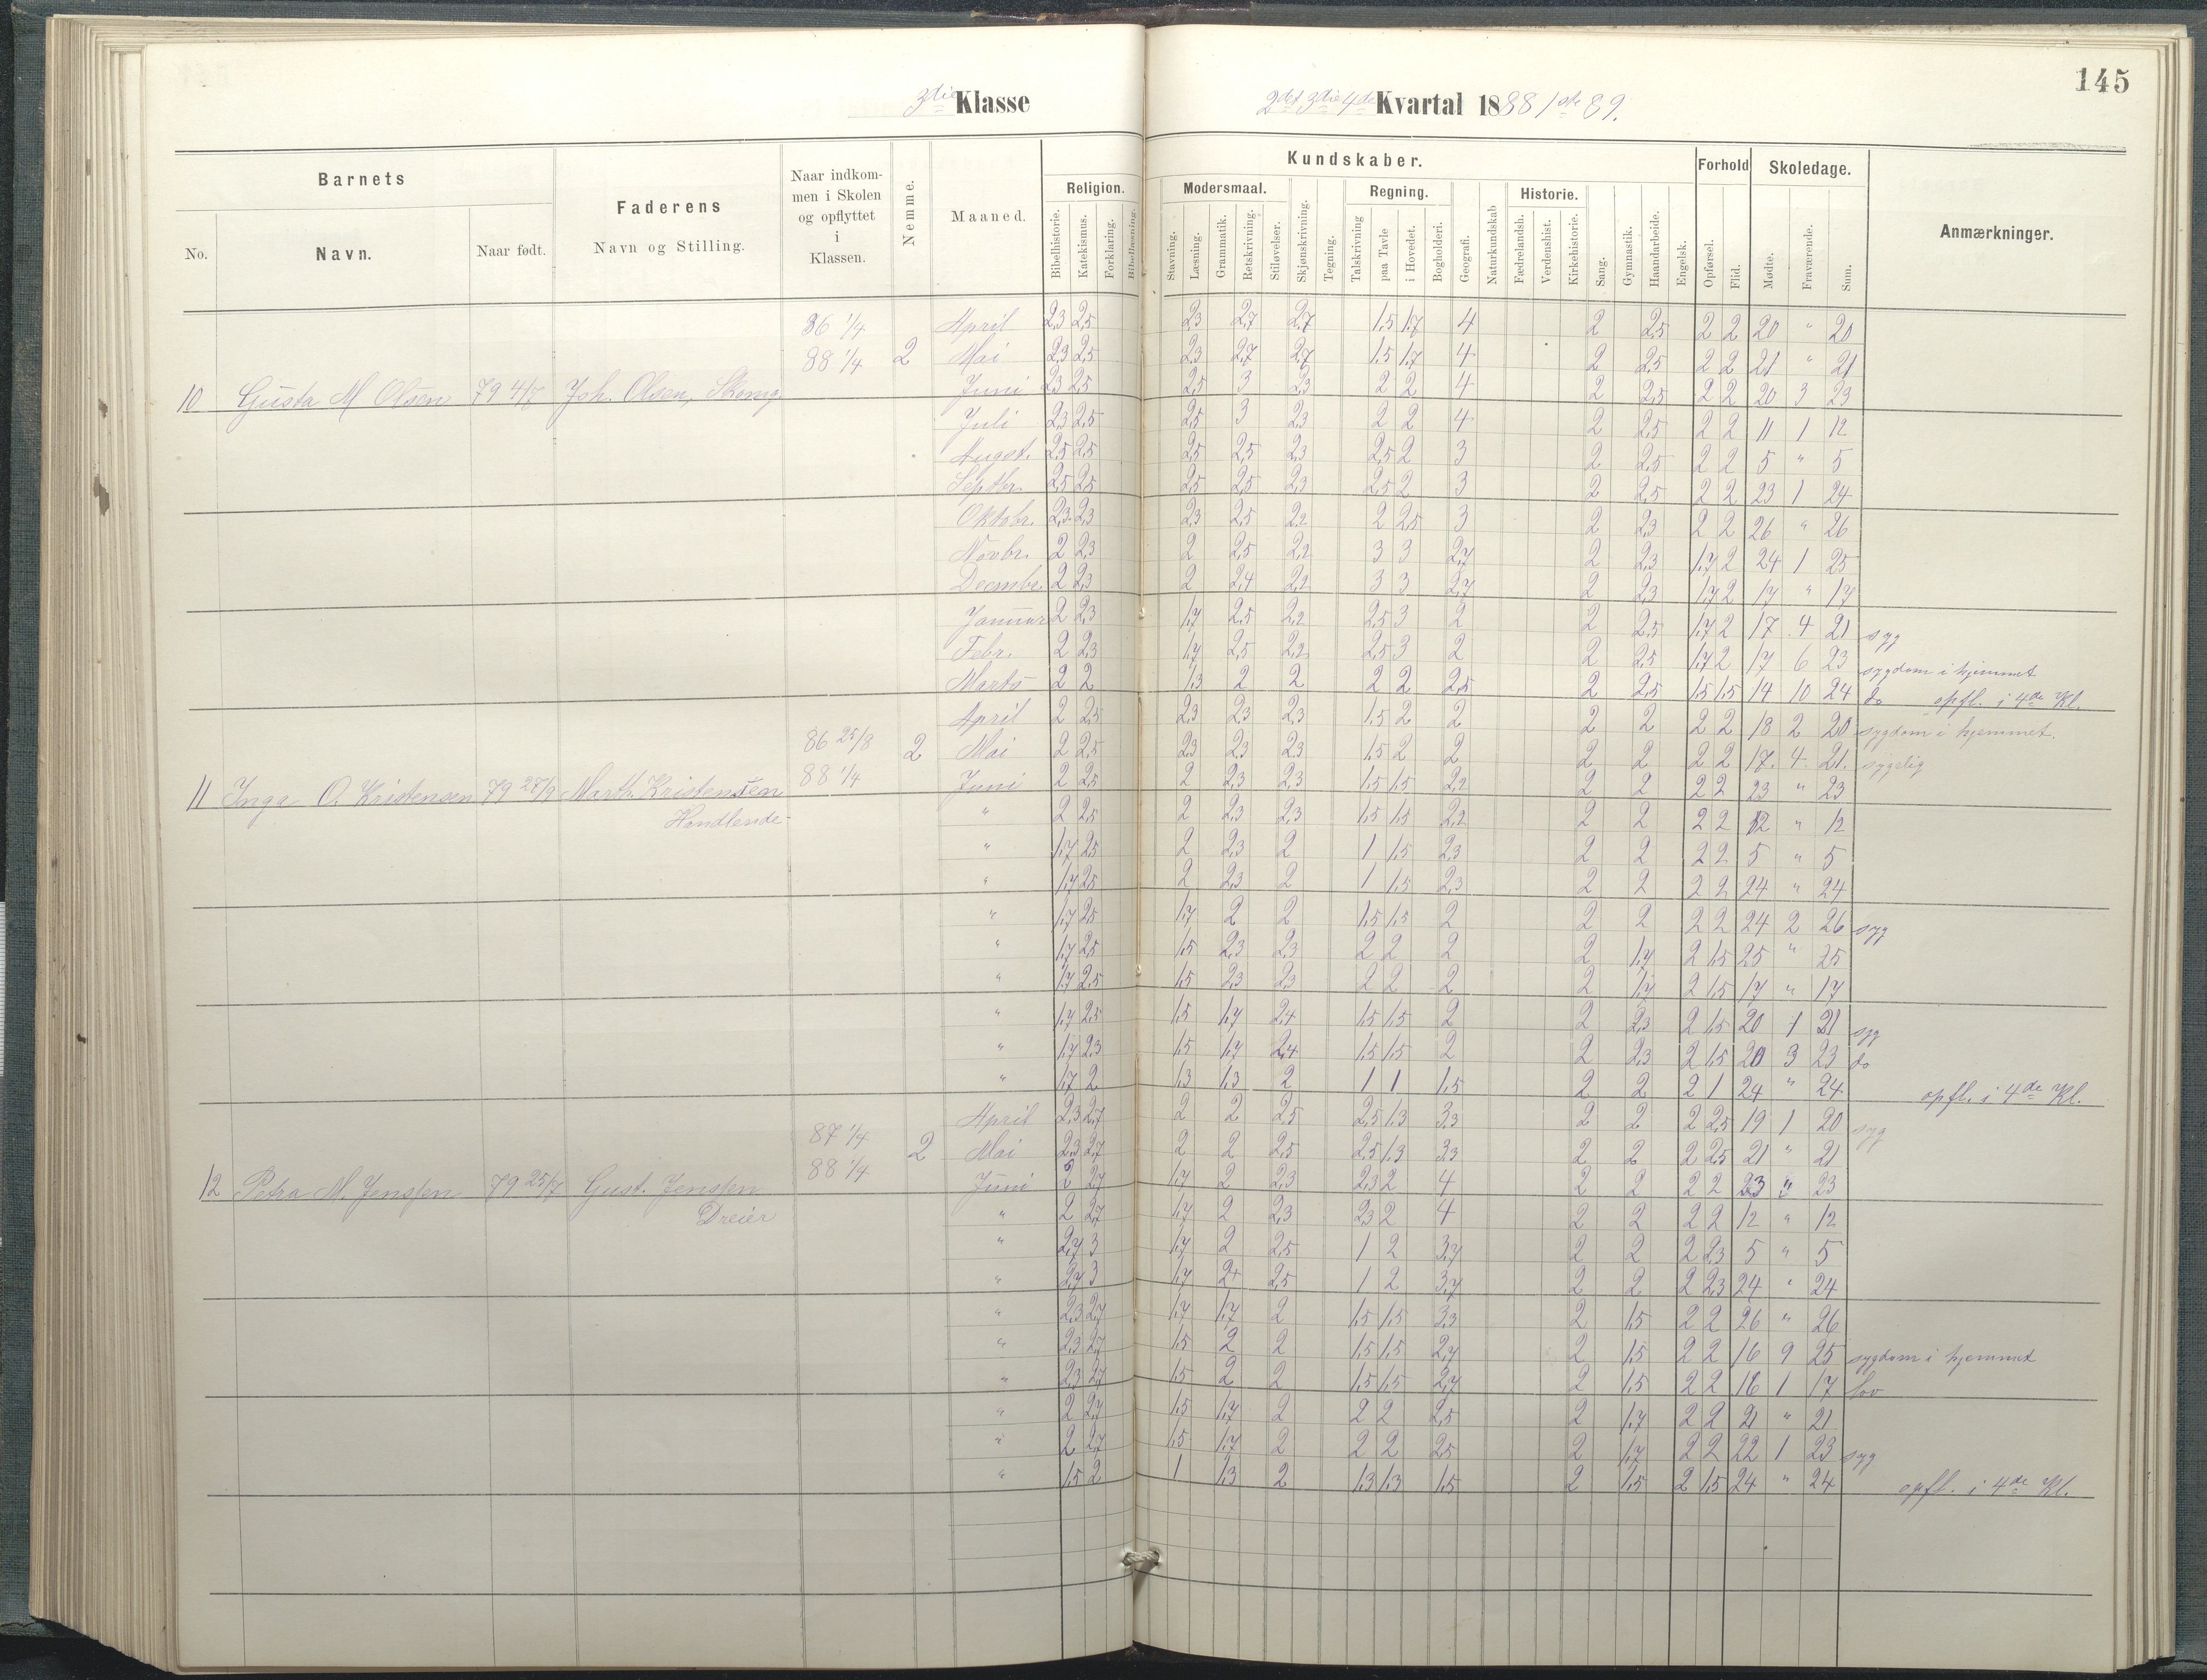 145
3die Klasse 2det 3die 4de Kvartal 1888 1ste 89.
Barnets Faderens Naar indkommen i Skolen og opflyttet i Klassen. Nemme. Maaned. Kundskaber. Forhold Skoledage. Anmærkninger.
No. Navn. Naar født. Navn og Stilling. Religion. Modersmaal. Regning. Historie.
Bibelhistorie. Katekismus. Forklaring. Bibellæsning. Stavning. Læsning. Grammatik. Retskrivning. Stiløvelser. Skjønskrivning. Tegning. Talskrivning paa Tavle i Hovedet. Bogholderi. Geografi. Naturkundskab Fædrelandsh. Verdenshist. Kirkehistorie. Sang. Gymnastik. Haandarbeide. Engelsk. Opførsel. Flid. Mødte. Fraværende. Sum.
86 1/4 April 2,3 2,5 2,3 2,7 2,7 1,5 1,7 4 2 2,5 2 2 20 " 20
88 1/4 2 Mai 2,3 2,5 2,3 2,7 2,7 1,5 1,7 4 2 2,5 2 2 21 " 21
10 Gusta M Olsen 79 4/7 Joh. Olsen, Juni 2,3 2,5 2,5 3 2,3 2 2 4 2 2,5 2 2 20 3 23
Juli 2,3 2,5 2,5 3 2,3 2 2 4 2 2,5 2 2 11 1 12
Augst. 2,5 2,5 2,5 2,5 2,3 2,5 2 3 2 2,5 2 2 5 " 5
Septbr. 2,5 2,5 2,5 2,5 2,3 2,5 2 3 2 2,5 2 2 23 1 24
Oktobr. 2,3 2,3 2,3 2,5 2,2 2 2,5 3 2 2,3 2 2 26 " 26
Novbr. 2 2,3 2 2,5 2,2 3 3 2,7 2 2,3 1,7 2 24 1 25
Decembr. 2 2,3 2 2,4 2,2 3 3 2,7 2 2,3 1,7 2 17 " 17
Januar 2 2,3 1,7 2,5 2,2 2,5 3 2 2 2,5 1,7 2 17 4 21 syg
Febr. 2 2,3 1,7 2,5 2,2 2,5 3 2 2 2,5 1,7 2 17 6 23 sygdom i hjemmet
Marts 2 2 1,3 2 2 2 2 2,5 2 2,5 1,5 1,5 14 10 24 do opfl. i 4de Kl.
April 2 2,5 2,3 2,3 2,3 1,5 2 2 2 2 2 2 18 2 20 sygdom i hjemmet.
86 25/8 2 Mai 2 2,5 2,3 2,3 2,3 1,5 2 2 2 2 2 2 17. 4. 21. sygelig
88 1/4 Juni 2 2,5 2 2,3 2,3 1,5 1,5 2,2 2 2 2 2 23 " 23
11 Inga O. Kristensen 79 27/9 Marth. Kristensen
Handlende " 2 2,5 2 2,3 2,3 1,5 1,5 2,2 2 2 2 2 12 " 12
" 1,7 2,5 2 2,3 2 1 1,5 2,3 2 2 2 2 5 " 5
" 1,7 2,5 2 2,3 2 1 1,5 2,3 2 2 2 2 24 " 24
" 1,7 2,5 1,7 2 2 1,5 1,5 2 2 2 2 2 24 2 26 syg
" 1,7 2,5 1,5 2,3 2,3 2 2 2 2 1,7 2 1,5 25 " 25
" 1,7 2,5 1,5 2,3 2,3 2 2 2 2 1,7 2 1,5 17 " 17
" 1,7 2,5 1,5 1,7 2,4 1,5 1,5 2 2 2,3 2 1,5 20 1 21 syg
" 1,7 2,3 1,5 1,7 2,4 1,5 1,5 2 2 2,3 2 1,5 20 3 23 do
" 1,7 2 1,3 1,3 2 1 1 1,5 2 2 2 1 24 " 24 opfl. i 4de Kl.
87 1/4 April 2,3 2,7 2 2 2,5 2,5 1,3 3,3 2 2 2 2,5 19 1 20 syg
2 Mai 2,3 2,7 2 2 2,5 2,5 1,3 3,3 2 2 2 2,5 21 " 21
88 1/4 Juni 2 2,7 1,7 2 2,3 2,3 2 4 2 2 2 2 23 " 23
12 Petra M. Jenssen 79 25/7 Gust. Jenssen
Dreier " 2 2,7 1,7 2 2,3 2,3 2 4 2 2 2 2 12 " 12
" 2,7 3 1,7 2 2,5 1 2 3,7 2 2 2 2,3 5 " 5
" 2,7 3 1,7 2+ 2,5 1 2 3,7 2 2 2 2,3 24 " 24
" 2,3 2,7 1,7 1,7 2 1,5 1,5 3,3 2 1,5 2 2 26 " 26
" 2,3 2,7 1,5 2 2 1,5 1,5 2,7 2 1,5 2 2 16 9 25 sygdom i hjemmet
" 2,3 2,7 1,5 2 2 1,5 1,5 2,7 2 1,5 2 2 16 1 17 lov
" 2 2,7 1,5 1,7 2 2 2 2,5 2 1,7 2 2 21 " 21
" 2 2,7 1,5 1,7 2 2 2 2,5 2 1,7 2 2 22 1 23 syg
" 1,5 2 1 1,3 2 1,3 1,3 1,5 2 1,5 2 1,5 24 " 24 opfl. i 4de Kl.